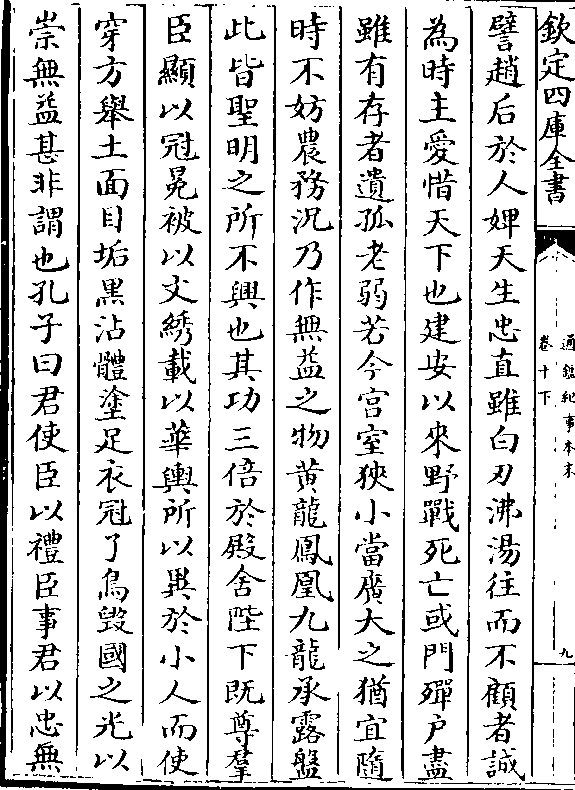 欽定四庫全書
通鑑紀事本末
卷十下
九
譬趙后於人婢天生忠直雖白刃沸湯往而不顧者誠
為時主愛惜天下也建安以來野戰死亡或門殫户盡
雖有存者遺孤老弱若今宫室狹小當廣大之猶宜隨
時不妨農務況乃作無益之物黄龍鳳凰九龍承露盤
此皆聖明之所不興也其功三倍於殿舍陛下既尊羣
臣顯以冠冕被以文綉載以華輿所以異於小人而使
穿方舉土面目垢黑沾體塗足衣冠了鳥毁國之光以
崇無益甚非謂也孔子曰君使臣以禮臣事君以忠無